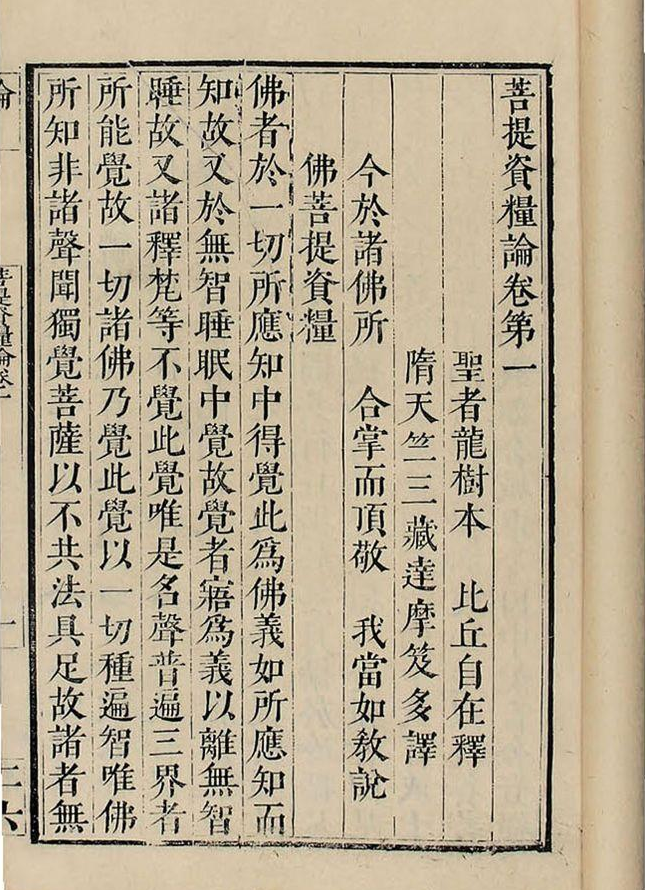 菩提資糧論卷第一
聖者龍樹本　比丘自在釋
隋天竺三藏達摩笈多譯
今於諸佛所　合掌而頂敬　我當如教說
佛菩提資糧
佛者於一切所應知中得覺此爲佛義如所應知而
知故又於無智睡眠中覺故覺者寤爲義以離無智
睡故又諸釋梵等不覺此覺唯是名聲普遍三界者
所能覺故一切諸佛乃覺此覺以一切種遍智唯佛
所知非諸聲聞獨覺菩薩以不共法具足故諸者無